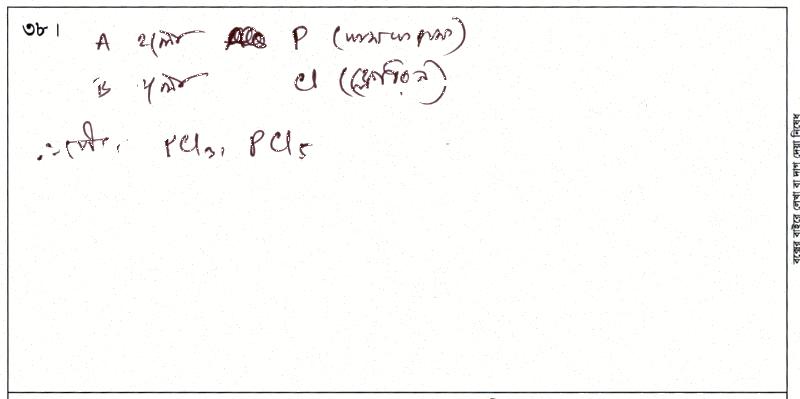 ৩৮।
A হলো P (ফসফরাস)
B হলো Cl (ক্লোরিন)
PCl₃, PCl₅
বক্সের বাইরে লেখা বা দাগ দেয়া নিষেধ